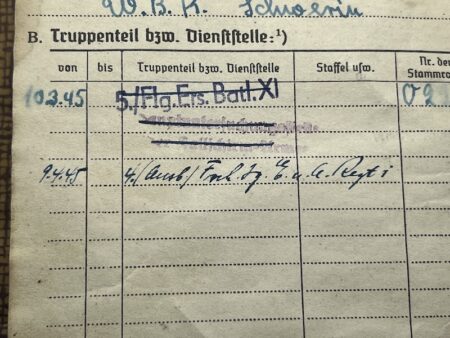 W.B.K. Schwerin
B. Truppenteil bzw. Dienststelle:¹)
von bis Truppenteil bzw. Dienststelle Staffel usw. Nr. der Stammro
10.3.45 5./Flg.Ers. Batl. XI 02
9.4.45 4./(Ausb) Fsch. Jg. E. u. A. Regt 1